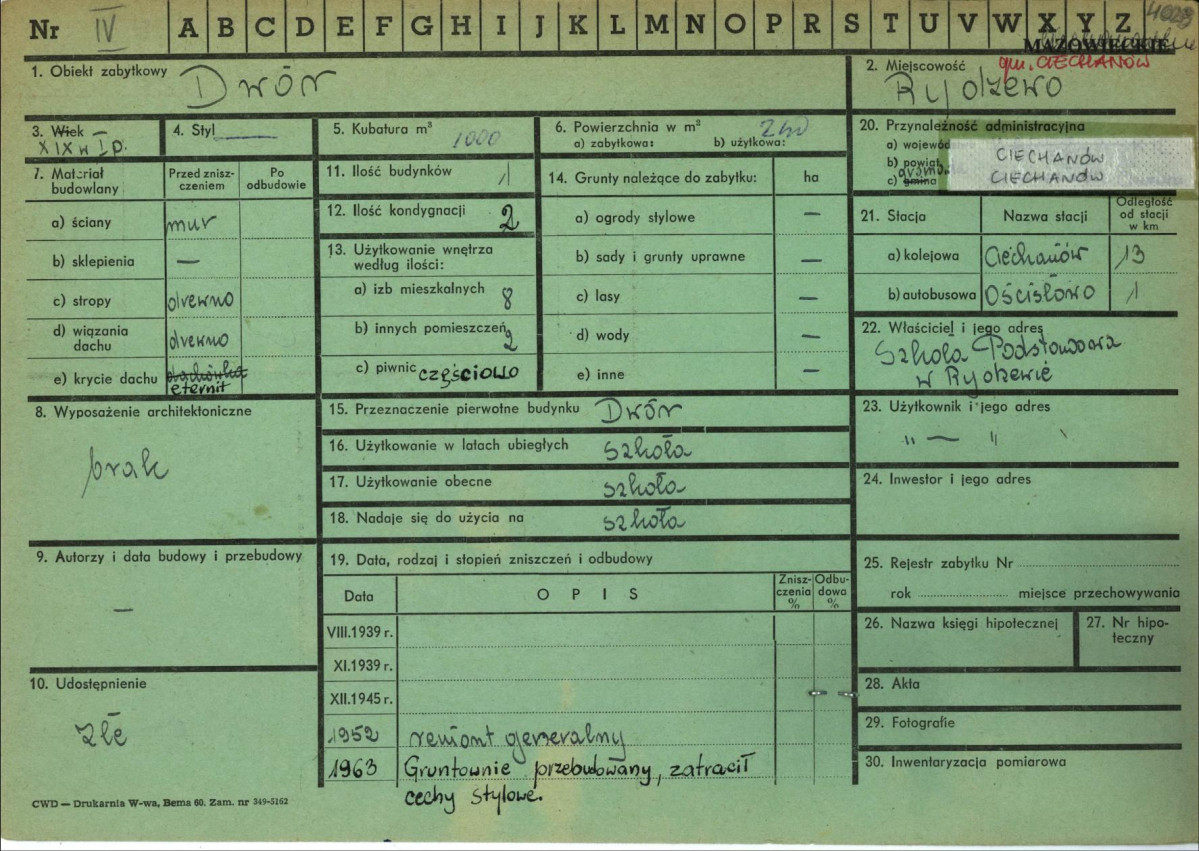 Nr IV A B C D E F G H I J K L M N O P R S T U V W X Y Z
MAZOWIECKIE
gm. CIECHANÓW
1. Obiekt zabytkowy Dwór
2. Miejscowość Rydzewo
3. Wiek —
XIX w I p.
4. Styl
5. Kubatura m³ 1000
6. Powierzchnia w m²
a) zabytkowa: b) użytkowa: 240
20. Przynależność administracyjna
a) wojewód
b) powiat
c) gmina
CIECHANÓW
CIECHANÓW
7. Materiał budowlany
Przed zniszczeniem
Po odbudowie
a) ściany mur
b) sklepienia —
c) stropy drewno
d) wiązania dachu drewno
e) krycie dachu dachówka
eternit
11. Ilość budynków 1
12. Ilość kondygnacji 2
13. Użytkowanie wnętrza
według ilości:
a) izb mieszkalnych 8
b) innych pomieszczeń 2
c) piwnic częściowo
14. Grunty należące do zabytku: ha
a) ogrody stylowe —
b) sady i grunty uprawne —
c) lasy —
d) wody —
e) inne —
21. Stacja Nazwa stacji Odległość od stacji w km
a) kolejowa Ciechanów 13
b) autobusowa Ościsłowo 1
22. Właściciel i jego adres
Szkoła Podstawowa
w Rydzewie
8. Wyposażenie architektoniczne
brak
15. Przeznaczenie pierwotne budynku Dwór
16. Użytkowanie w latach ubiegłych szkoła
17. Użytkowanie obecne szkoła
18. Nadaje się do użycia na szkoła
23. Użytkownik i jego adres
" — "
24. Inwestor i jego adres
9. Autorzy i data budowy i przebudowy
—
19. Data, rodzaj i stopień zniszczeń i odbudowy
Data OPIS Zniszczenia % Odbudowa %
VIII.1939 r.
XI.1939 r.
XII.1945 r.
1952 remont generalny
1963 Gruntownie przebudowany, zatracił
cechy stylowe.
25. Rejestr zabytku Nr
rok miejsce przechowywania
26. Nazwa księgi hipotecznej
27. Nr hipoteczny
10. Udostępnienie
złe
28. Akta
29. Fotografie
30. Inwentaryzacja pomiarowa
CWD — Drukarnia W-wa, Bema 60. Zam. nr 349-5162